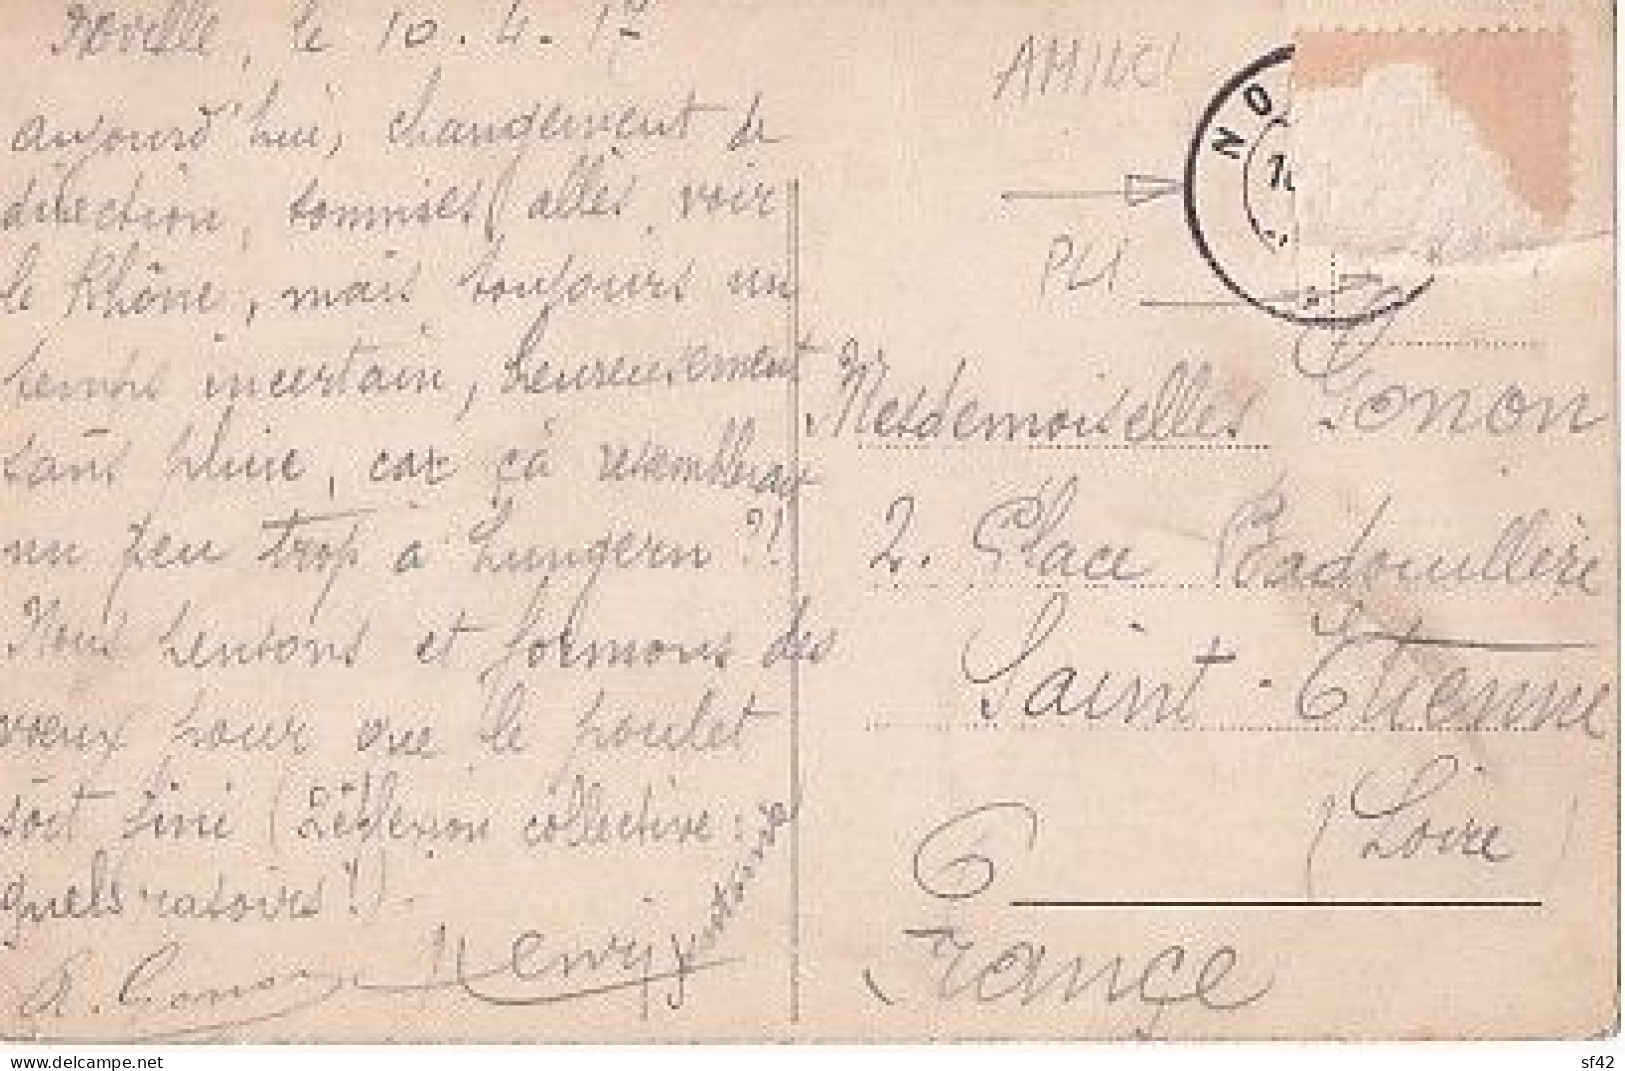 Noville, le 10.4.17
aujourd'hui, changement de
direction, sommes allés voir
le Rhône, mais toujours un
temps incertain, heureusement
sans pluie, car çà ressemblerait
un peu trop à Lungern ?!
Nous pensons et formons des
vœux pour que le poulet
soit fini (Réflexion collective :
quels rasoirs !).
R. Gonon Henry
AMINCI
PLI
NO
Mesdemoiselles Gonon
2. Place Badouillère
Saint-Etienne
(Loire)
France
delcampe.net
sf42